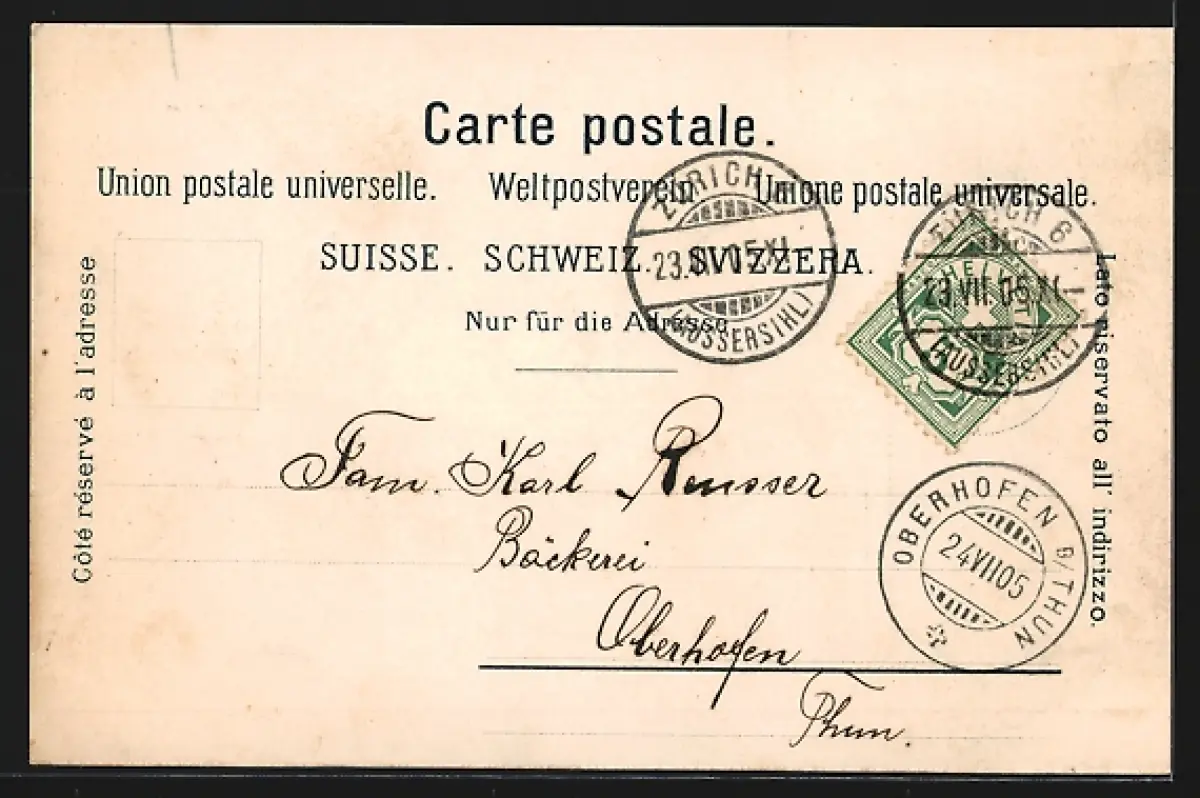 Carte postale.
Union postale universelle. Weltpostverein Unione postale universale.
SUISSE. SCHWEIZ. SVIZZERA.
Nur für die Adresse
Côté réservé à l'adresse
Lato riservato all' indirizzo.
ZÜRICH 6
23.VII.05.XI
(AUSSERSIHL)
ZÜRICH 6
23.VII.05.XI
(AUSSERSIHL)
HELVETIA
OBERHOFEN B/THUN
24 VII 05
Fam. Karl Reusser
Bäckerei
Oberhofen
Thun.